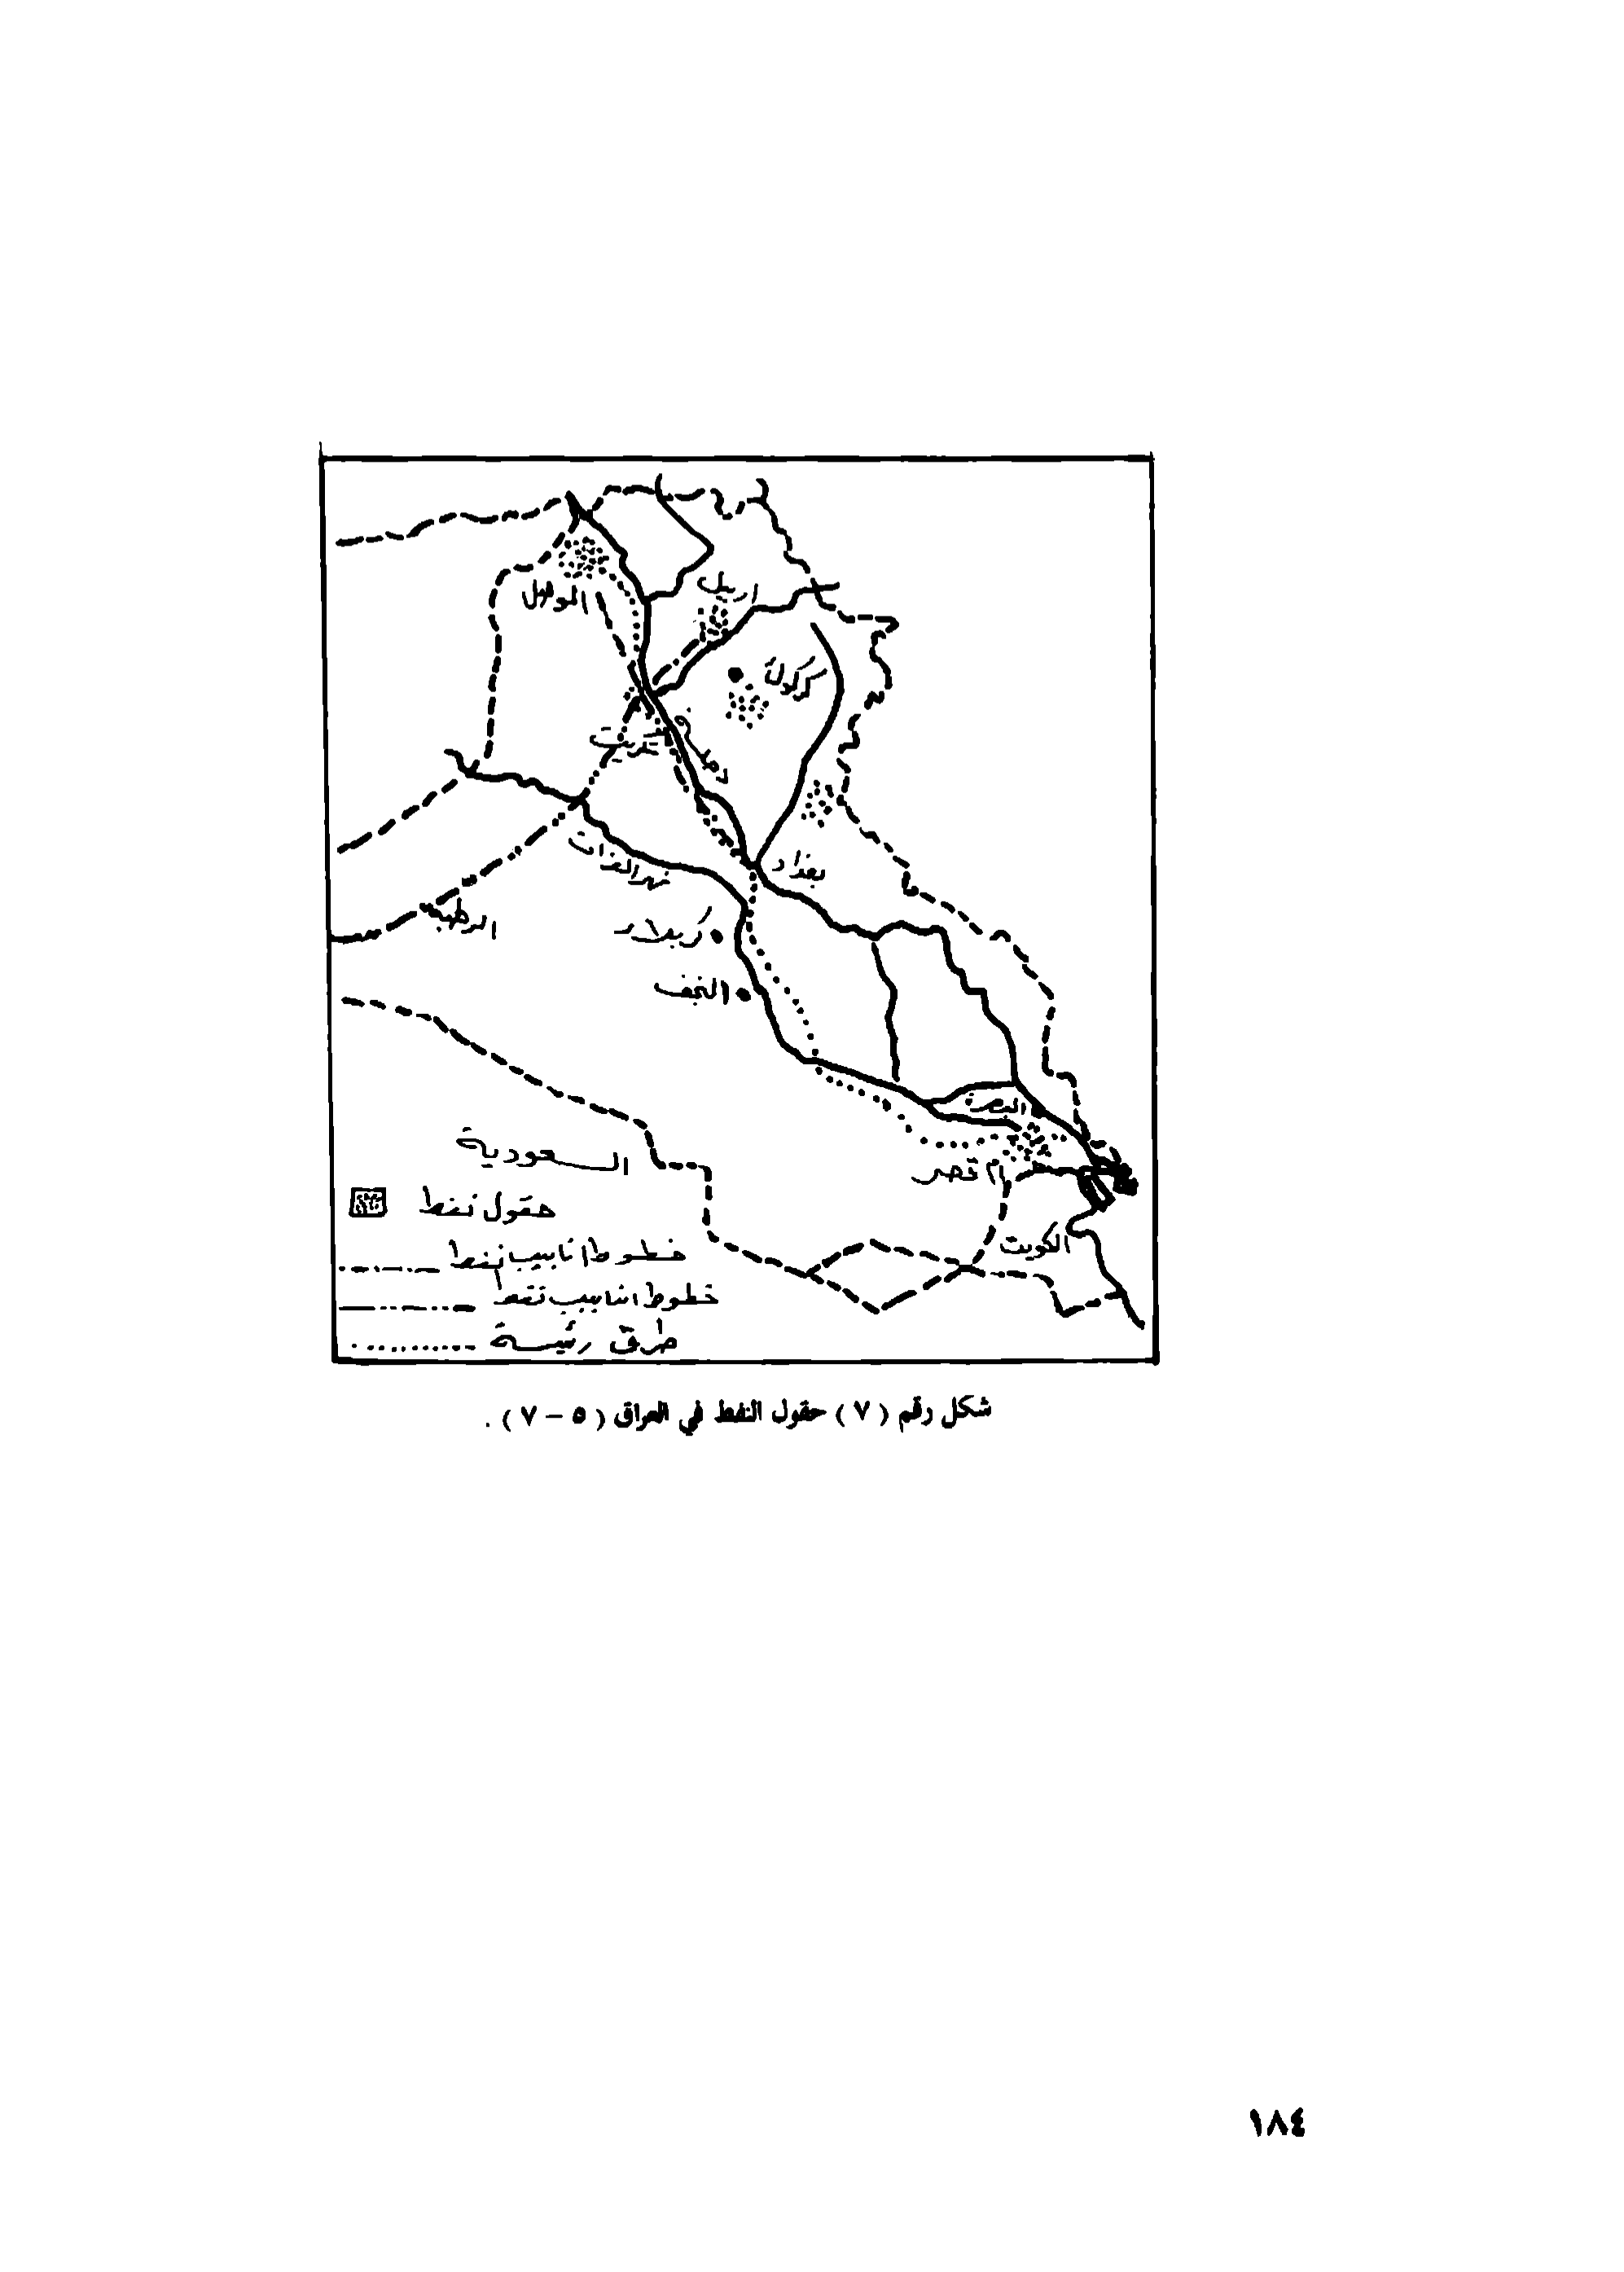 الموصل
اربيل
كركوك
تكريت
بغداد
نهر الفرات
الرطبة
كربلاء
النجف
البصرة
ام قصر
الكويت
السعودية
حقول نفط
خطوط انابيب نفط
خطوط انابيب نفط
طرق رئيسة
شكل رقم (٧) حقول النفط في العراق (٥ – ٧).
١٨٤